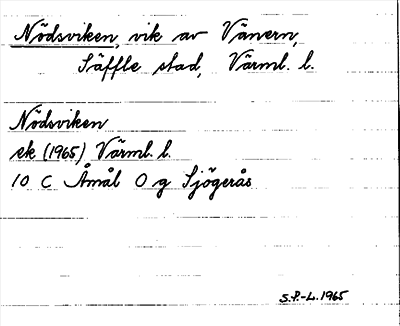 Nödsviken, vik av Vänern,
Säffle stad, Värml. l.
Nödsviken
ek (1965) Värml. l.
10 C Åmål O g Sjögerås
S.P.-L. 1965